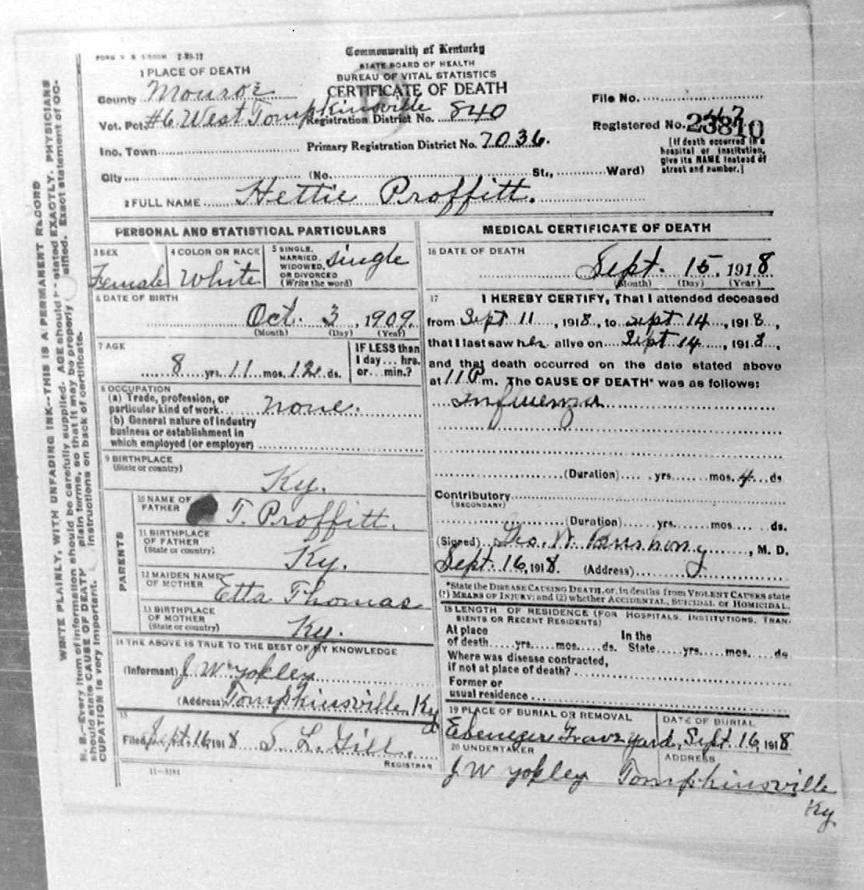 Commonwealth of Kentucky
STATE BOARD OF HEALTH
BUREAU OF VITAL STATISTICS
CERTIFICATE OF DEATH
1 PLACE OF DEATH
County Monroe
Vot. Pct. #6 West Tompkinsville Registration District No. 840
Inc. Town Primary Registration District No. 7036.
City (No. St., Ward)
File No.
Registered No. 47
23810
[If death occurred in a
hospital or institution,
give its NAME instead of
street and number.]
2 FULL NAME Hettie Proffitt.
PERSONAL AND STATISTICAL PARTICULARS
3 SEX Female
4 COLOR OR RACE White
5 SINGLE, MARRIED, WIDOWED, OR DIVORCED (Write the word) single
6 DATE OF BIRTH
Oct. 3, 1909.
(Month) (Day) (Year)
7 AGE
8 yrs. 11 mos. 12 ds.
IF LESS than
1 day... hrs.
or... min.?
8 OCCUPATION
(a) Trade, profession, or
particular kind of work none.
(b) General nature of industry
business or establishment in
which employed (or employer)
9 BIRTHPLACE
(State or country)
Ky.
PARENTS
10 NAME OF
FATHER T. Proffitt.
11 BIRTHPLACE
OF FATHER
(State or country) Ky.
12 MAIDEN NAME
OF MOTHER Etta Thomas
13 BIRTHPLACE
OF MOTHER
(State or country) Ky.
14 THE ABOVE IS TRUE TO THE BEST OF MY KNOWLEDGE
(Informant) J. W. Yokley
(Address) Tompkinsville, Ky
15
Filed Sept. 16, 1918 S. L. Gill,
REGISTRAR
11-3184
MEDICAL CERTIFICATE OF DEATH
16 DATE OF DEATH
Sept. 15, 1918
(Month) (Day) (Year)
17 I HEREBY CERTIFY, That I attended deceased
from Sept 11, 1918, to Sept 14, 1918,
that I last saw her alive on Sept 14, 1918,
and that death occurred on the date stated above
at 11 P m. The CAUSE OF DEATH* was as follows:
Influenza
(Duration) yrs. mos. 4 ds
Contributory
(SECONDARY)
(Duration) yrs. mos. ds.
(Signed) Geo. W. Bushong, M. D.
Sept. 16, 1918. (Address)
*State the DISEASE CAUSING DEATH, or, in deaths from VIOLENT CAUSES state
(1) MEANS OF INJURY; and (2) whether ACCIDENTAL, SUICIDAL or HOMICIDAL.
18 LENGTH OF RESIDENCE (FOR HOSPITALS, INSTITUTIONS, TRAN-
SIENTS OR RECENT RESIDENTS)
At place In the
of death yrs. mos. ds. State yrs. mos. ds
Where was disease contracted,
if not at place of death?
Former or
usual residence
19 PLACE OF BURIAL OR REMOVAL DATE OF BURIAL
Ebenezer Grave yard, Sept. 16, 1918
20 UNDERTAKER ADDRESS
J W Yokley Tompkinsville
Ky.
WRITE PLAINLY, WITH UNFADING INK---THIS IS A PERMANENT RECORD
N. B.—Every item of information should be carefully supplied. AGE should be stated EXACTLY. PHYSICIANS
should state CAUSE OF DEATH plain terms, so that it may be properly classified. Exact statement of OC-
CUPATION is very important. instructions on back of certificate.